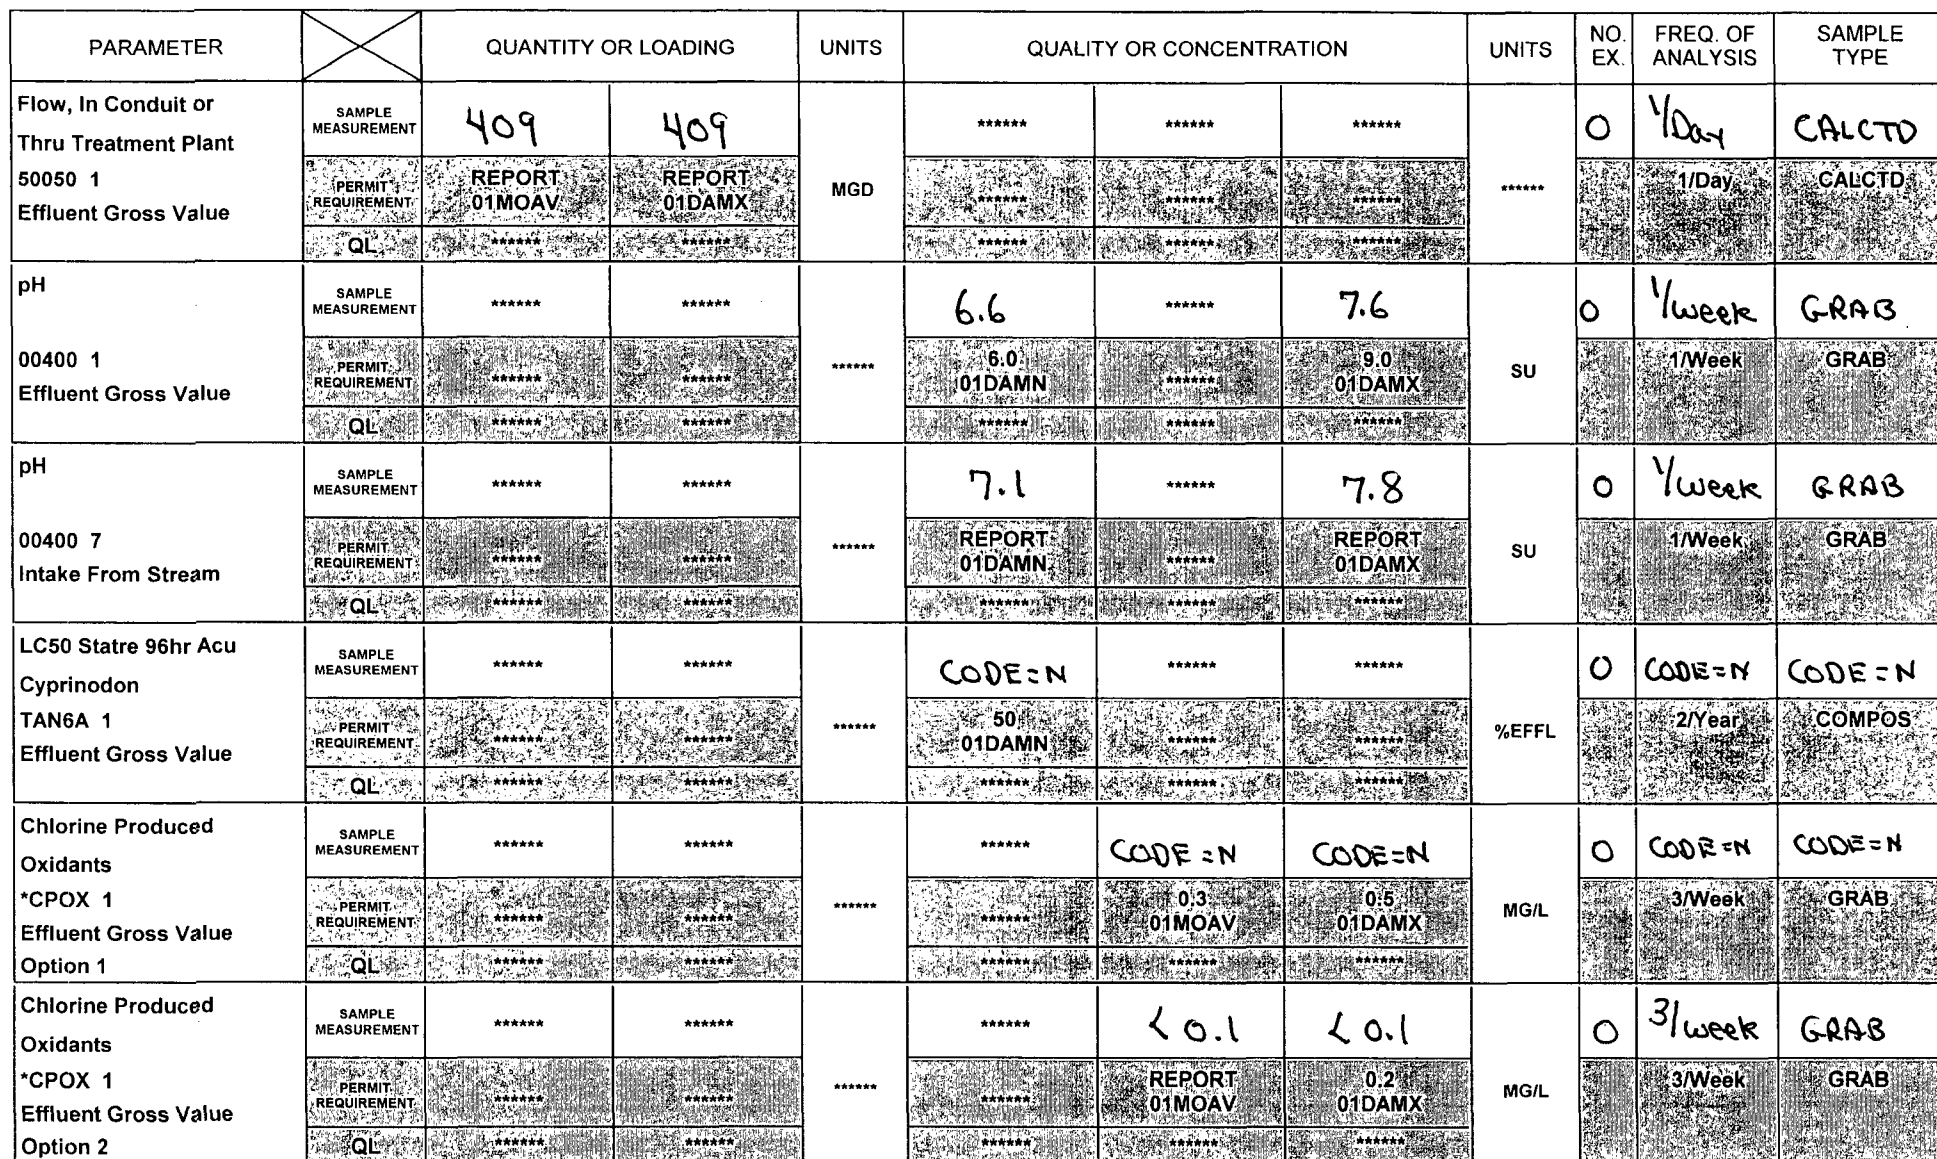 PARAMETER QUANTITY OR LOADING UNITS QUALITY OR CONCENTRATION UNITS NO. EX. FREQ. OF ANALYSIS SAMPLE TYPE
Flow, In Conduit or
Thru Treatment Plant
50050 1
Effluent Gross Value
SAMPLE MEASUREMENT 409 409 ****** ****** ****** 0 1/Day CALCTD
PERMIT REQUIREMENT REPORT 01MOAV REPORT 01DAMX MGD ****** ****** ****** ****** 1/Day CALCTD
QL ****** ****** ****** ****** ******
pH
00400 1
Effluent Gross Value
SAMPLE MEASUREMENT ****** ****** 6.6 ****** 7.6 0 1/week GRAB
PERMIT REQUIREMENT ****** ****** ****** 6.0 01DAMN ****** 9.0 01DAMX SU 1/Week GRAB
QL ****** ****** ****** ****** ******
pH
00400 7
Intake From Stream
SAMPLE MEASUREMENT ****** ****** 7.1 ****** 7.8 0 1/week GRAB
PERMIT REQUIREMENT ****** ****** ****** REPORT 01DAMN ****** REPORT 01DAMX SU 1/Week GRAB
QL ****** ****** ****** ****** ******
LC50 Statre 96hr Acu
Cyprinodon
TAN6A 1
Effluent Gross Value
SAMPLE MEASUREMENT ****** ****** CODE=N ****** ****** 0 CODE=N CODE=N
PERMIT REQUIREMENT ****** ****** ****** 50 01DAMN ****** ****** %EFFL 2/Year COMPOS
QL ****** ****** ****** ****** ******
Chlorine Produced
Oxidants
*CPOX 1
Effluent Gross Value
Option 1
SAMPLE MEASUREMENT ****** ****** ****** CODE=N CODE=N 0 CODE=N CODE=N
PERMIT REQUIREMENT ****** ****** ****** ****** 0.3 01MOAV 0.5 01DAMX MG/L 3/Week GRAB
QL ****** ****** ****** ****** ******
Chlorine Produced
Oxidants
*CPOX 1
Effluent Gross Value
Option 2
SAMPLE MEASUREMENT ****** ****** ****** < 0.1 < 0.1 0 3/week GRAB
PERMIT REQUIREMENT ****** ****** ****** ****** REPORT 01MOAV 0.2 01DAMX MG/L 3/Week GRAB
QL ****** ****** ****** ****** ******